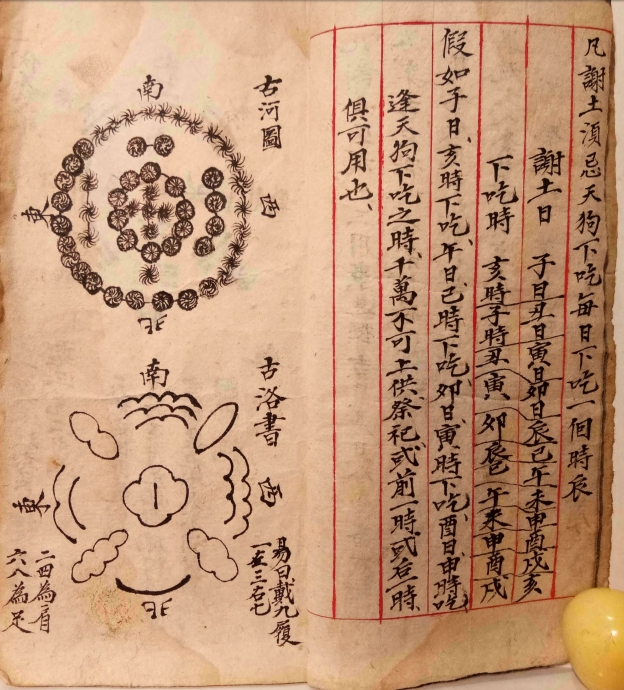 凡謝土須忌天狗下吃每日下吃一個時辰
謝土日 子日丑日寅日卯日辰巳午未申酉戌亥
下吃時 亥時子時丑寅卯辰巳午未申酉戌
假如子日亥時下吃午日巳時下吃卯日寅時下吃酉日申時吃
逢天狗下吃之時千萬不可上供祭祀或前一時或后一時
俱可用也
古河圖
南
西
東
北
古洛書
南
西
東
北
易曰戴九履
一左三右七
二四為肩
六八為足